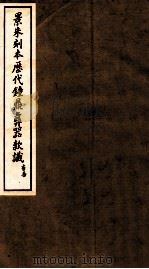 景朱刻本歷代鐘鼎彝器款識